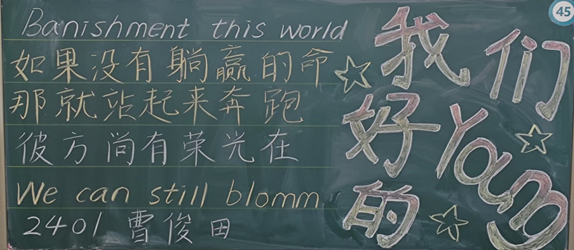 Banishment this world
如果没有躺赢的命
那就站起来奔跑
彼方尚有荣光在
We can still blomm
2401 曹俊田
我们
好Young
的
45